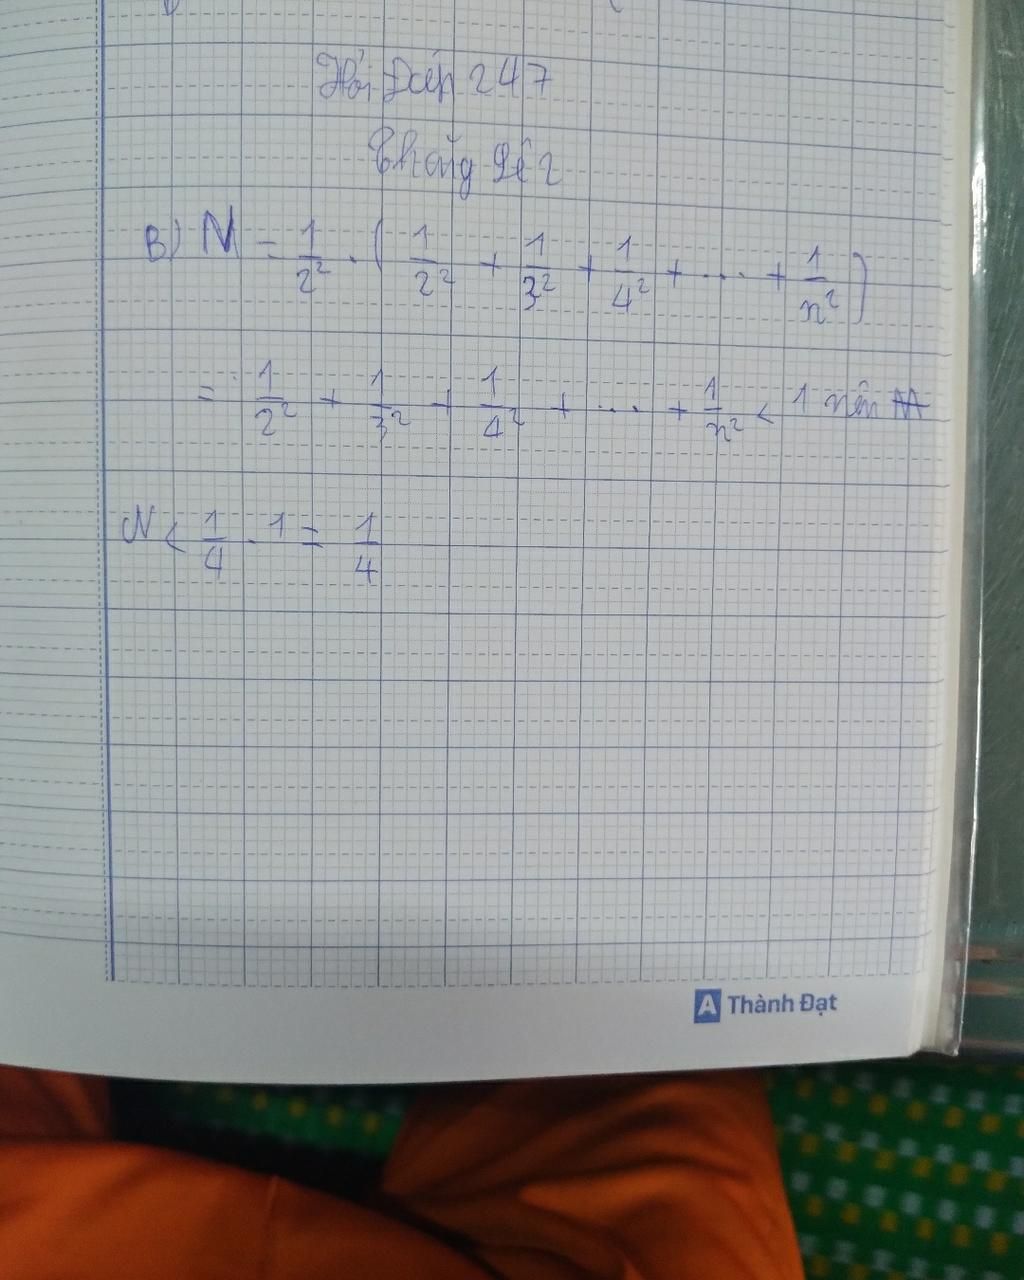 Hỏi Đáp 247
B) N = 1/2² . ( 1/2² + 1/3² + 1/4² + ... + 1/n² )
= 1/2² + 1/3² + 1/4² + ... + 1/n² < 1 nên
N < 1/4 . 1 = 1/4
A Thành Đạt